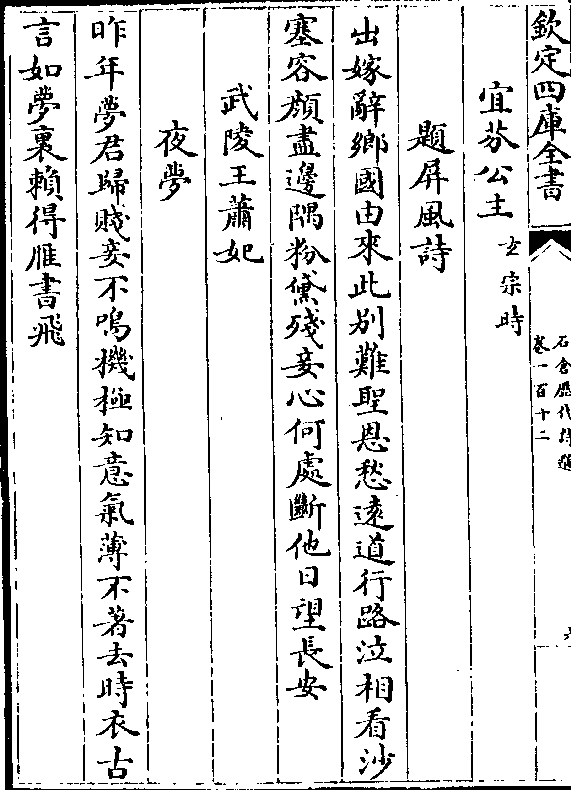 欽定四庫全書
石倉歷代詩選
卷一百十二
宜芬公主 玄宗時
題屏風詩
出嫁辭鄉國由來此别難聖恩愁遠道行路泣相看沙
塞容顔盡邊隅粉黛殘妾心何處斷他日望長安
武陵王蕭妃
夜夢
昨年夢君歸賤妾不鳴機極知意氣薄不著去時衣古
言如夢裏賴得雁書飛